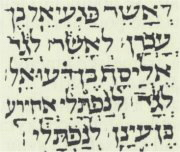 לְאָשֵׁר פַּגְעִיאֵל בֶּן
עָכְרָן׃ לְאָשֵׁר׳ לְגָד
אֶלְיָסָף בֶּן דְּעוּאֵל׃
לְגָד׳ לְנַפְתָּלִי אֲחִירַע
בֶּן עֵינָן׃ לְנַפְתָּלִי׳